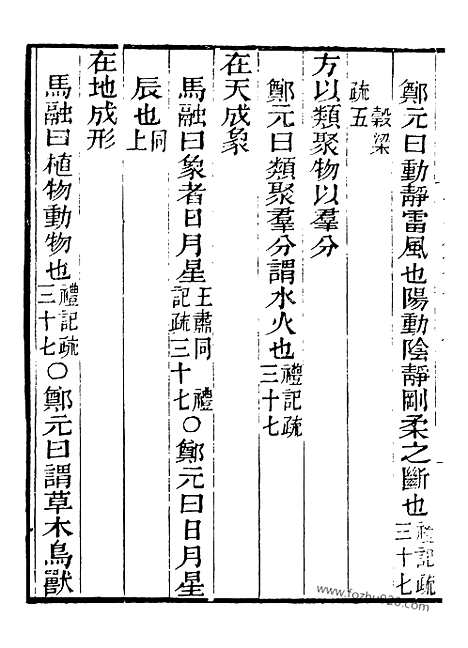 鄭元曰動靜雷風也陽動陰靜剛柔之斷也禮記疏三十七
穀梁疏五
方以類聚物以羣分
鄭元曰類聚羣分謂水火也禮記疏三十七
在天成象
馬融曰象者日月星王肅同禮記疏三十七〇鄭元曰日月星
辰也同上
在地成形
馬融曰植物動物也禮記疏三十七〇鄭元曰謂草木鳥獸
www.fozhu920.com